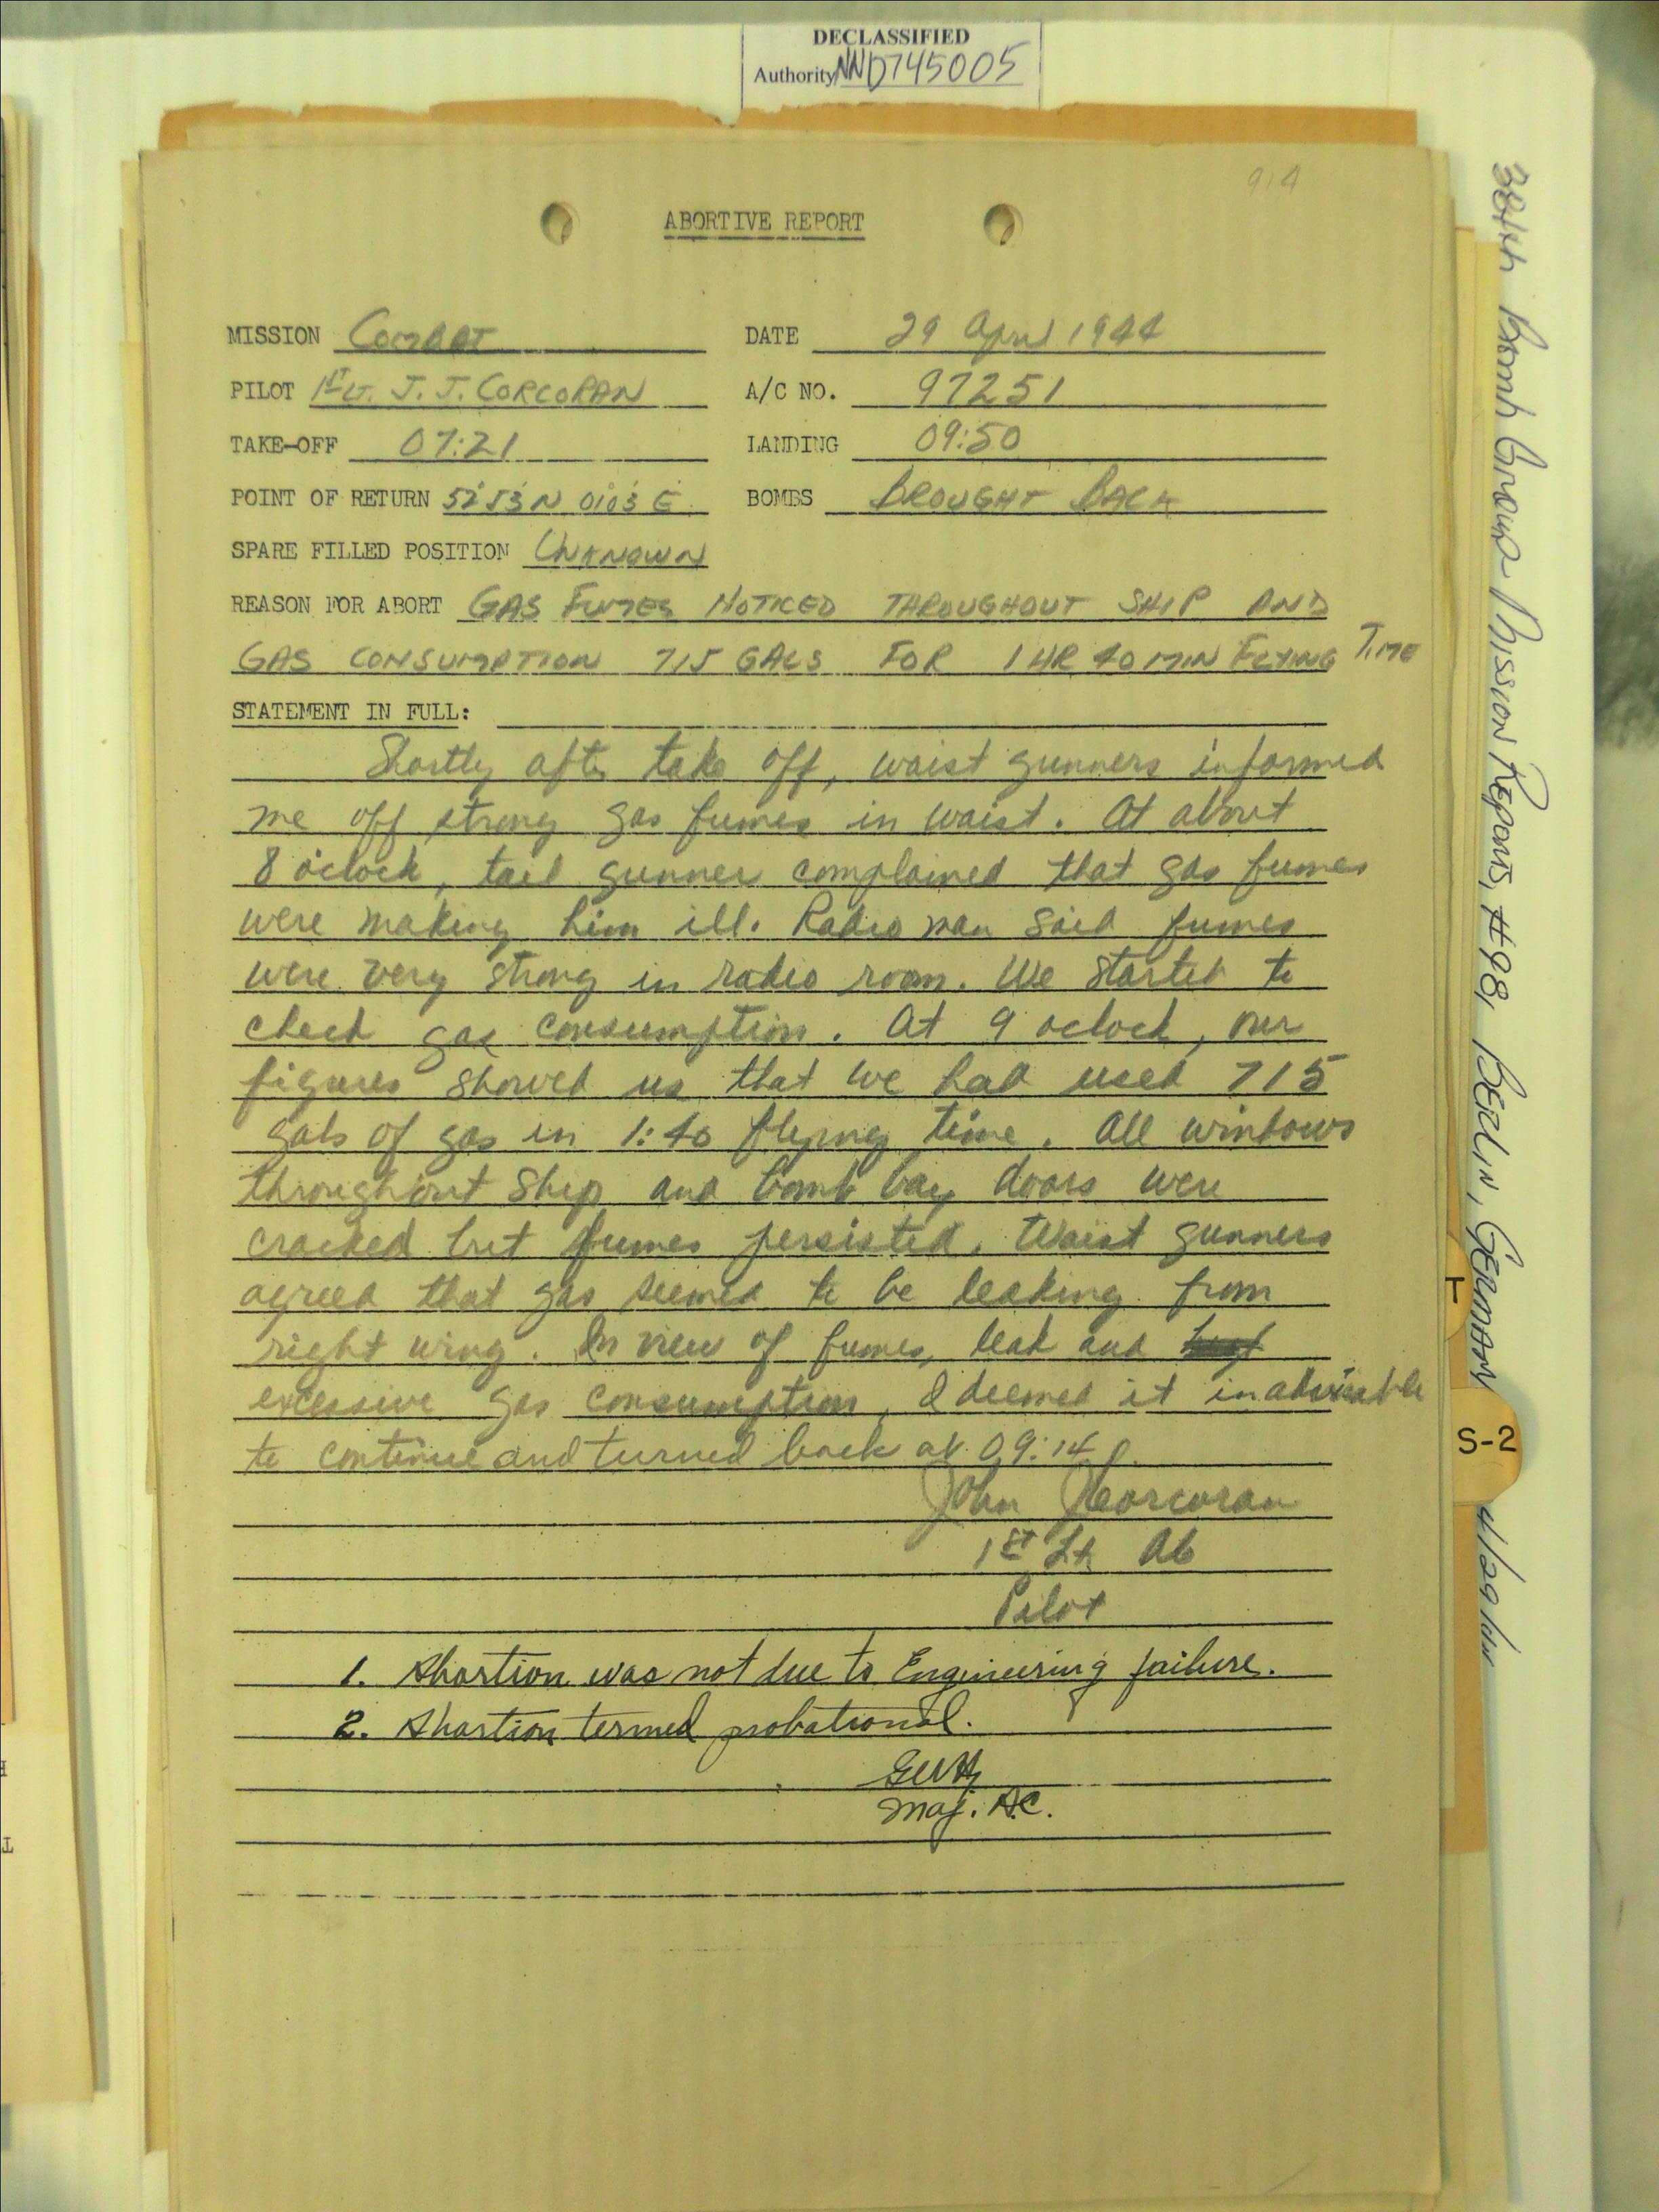 DECLASSIFIED
Authority NND745005
914
ABORTIVE REPORT
MISSION COMBAT DATE 29 April 1944
PILOT 1ST LT. J. J. CORCORAN A/C NO. 97251
TAKE-OFF 07:21 LANDING 09:50
POINT OF RETURN 52°53'N 0103'E BOMBS BROUGHT BACK
SPARE FILLED POSITION UNKNOWN
REASON FOR ABORT GAS FUMES NOTICED THROUGHOUT SHIP AND
GAS CONSUMPTION 715 GALS FOR 1 HR 40 MIN FLYING TIME
STATEMENT IN FULL:
Shortly after take off, waist gunners informed
me off strong gas fumes in waist. At about
8 o'clock, tail gunner complained that gas fumes
were making him ill. Radio man said fumes
were very strong in radio room. We started to
check gas consumption. At 9 oclock, our
figures showed us that we had used 715
gals of gas in 1:40 flying time. All windows
throughout ship and bomb bay doors were
cracked but fumes persisted. Waist gunners
agreed that gas seemed to be leaking from
right wing. In view of fumes, leak and
excessive gas consumption, I deemed it inadvisable
to continue and turned back at 09:14.
John J Corcoran
1st Lt. AC
Pilot
1. Abortion was not due to Engineering failure.
2. Abortion termed probational.
Maj. AC.
384th Bomb Group Mission Reports, #98, BERLIN, GERMANY 4/29/44
T
S-2